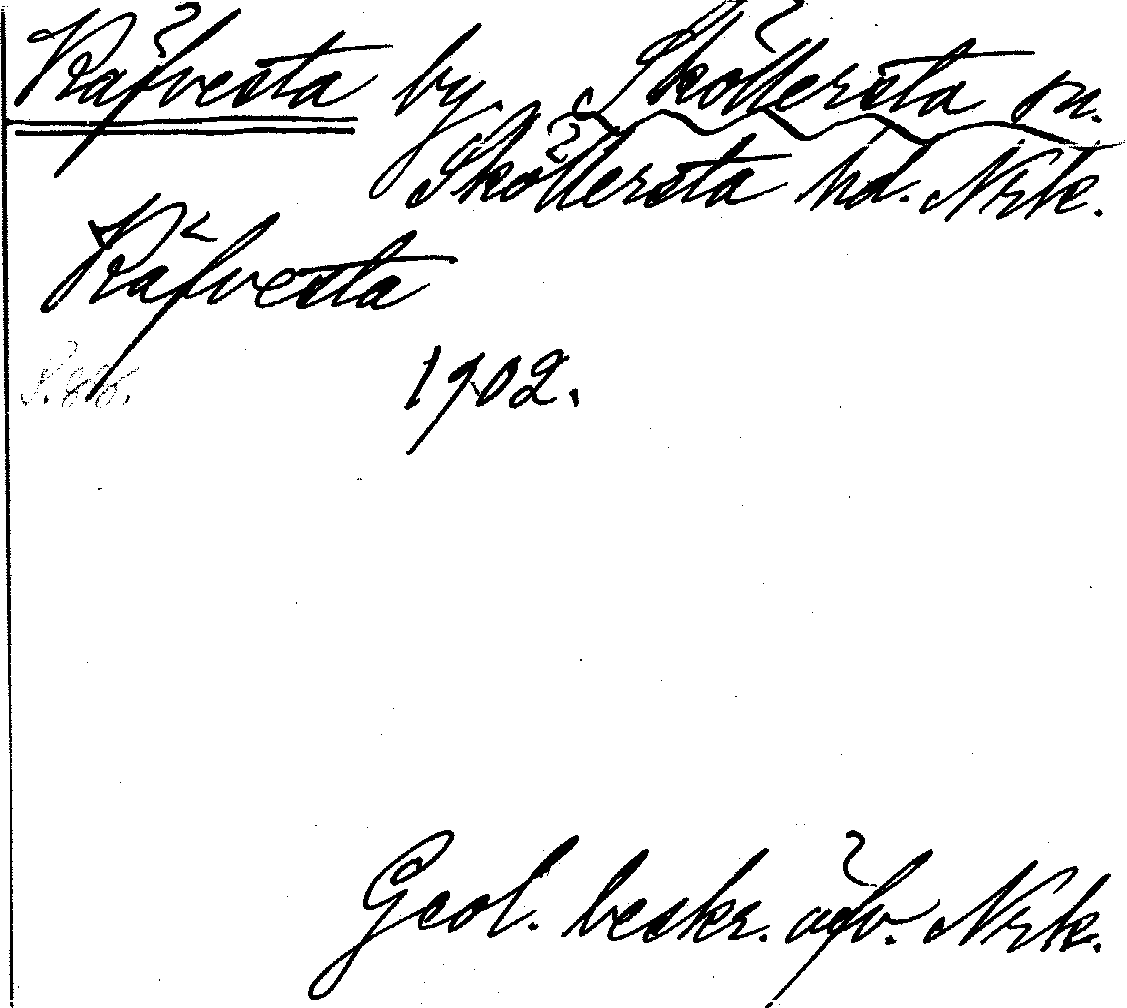 Räfvesta by, Sköllersta sn.
Sköllersta hd. Nrk.
Räfvesta
1902.
Geol. beskr. öfv. Nrk.